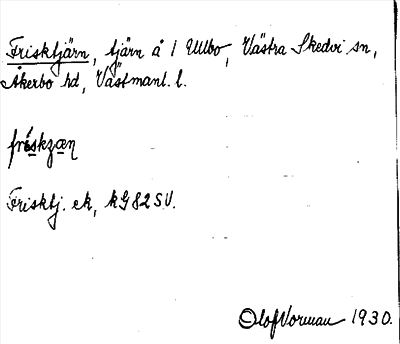 Frisktjärn, tjärn å 1 Ullbo, Västra Skedvi sn,
Åkerbo hd, Västmanl. l.
friskzæn
Frisktj. ek, kG 82 SV.
Olof Vorman 1930.